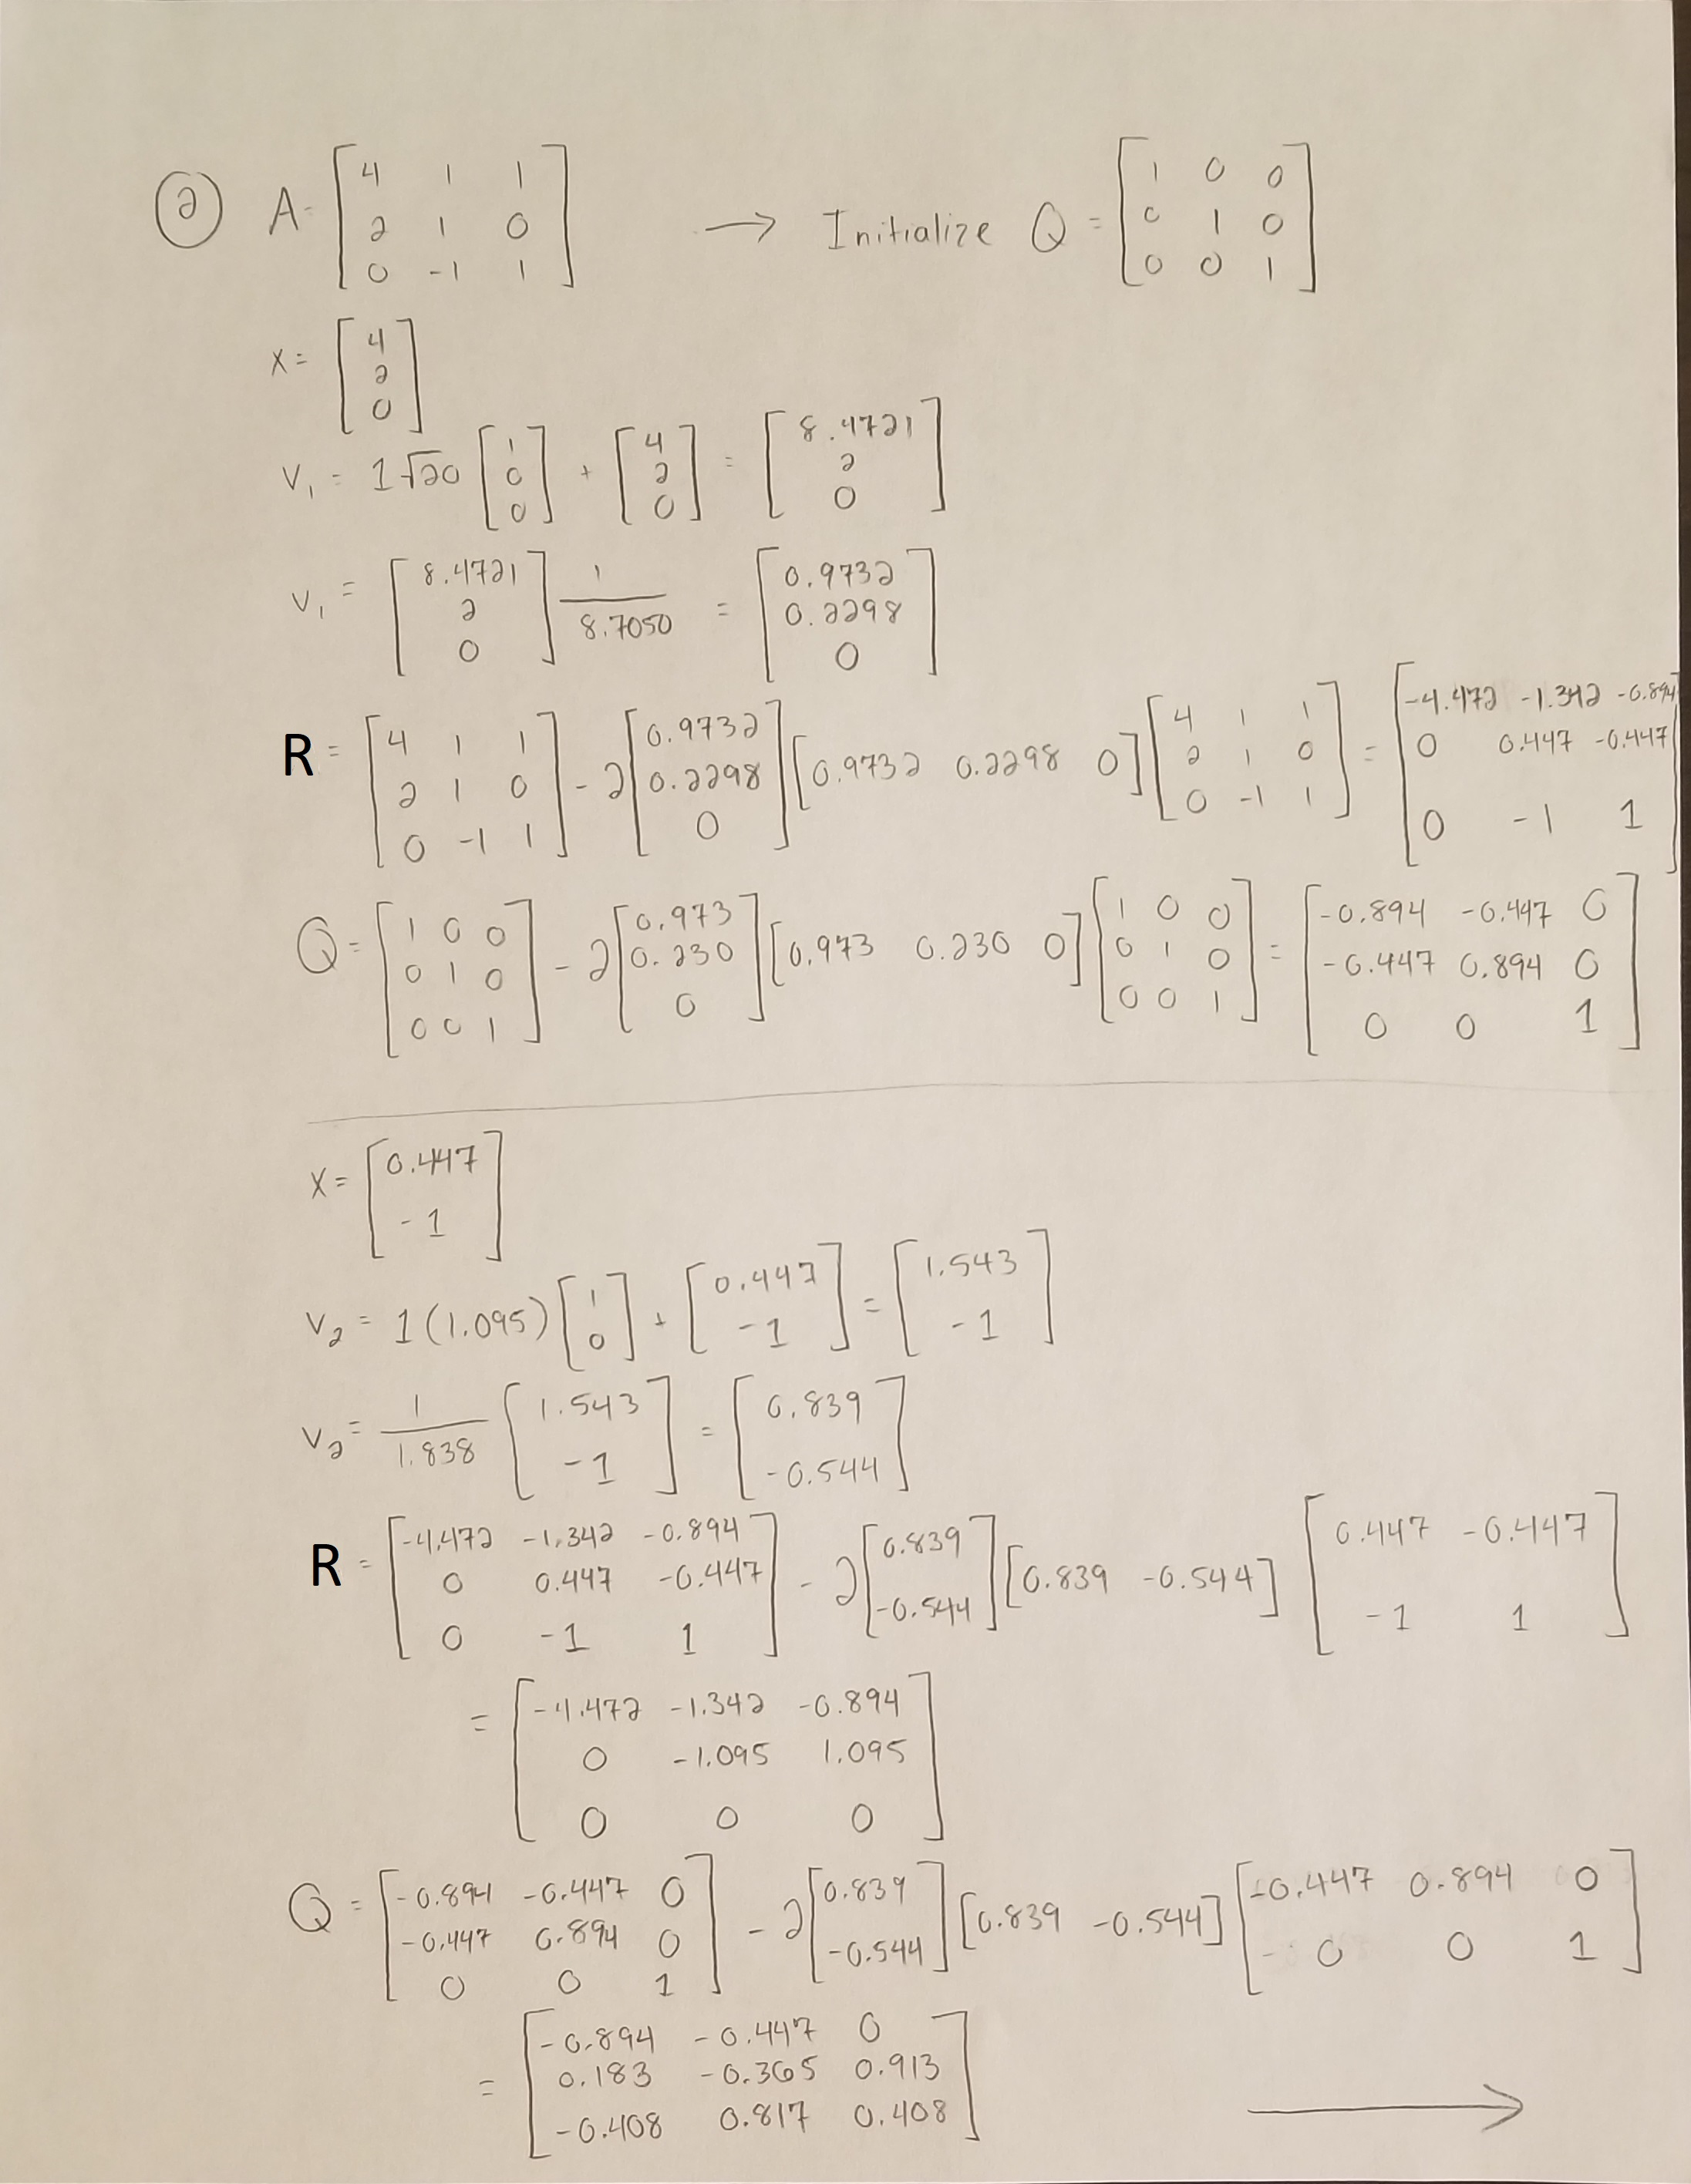 ② A = [4 1 1; 2 1 0; 0 -1 1] → Initialize Q = [1 0 0; 0 1 0; 0 0 1]
x = [4; 2; 0]
v₁ = 1√20 [1; 0; 0] + [4; 2; 0] = [8.4721; 2; 0]
v₁ = [8.4721; 2; 0] 1/8.7050 = [0.9732; 0.2298; 0]
R = [4 1 1; 2 1 0; 0 -1 1] - 2[0.9732; 0.2298; 0][0.9732 0.2298 0][4 1 1; 2 1 0; 0 -1 1] = [-4.472 -1.342 -0.894; 0 0.447 -0.447; 0 -1 1]
Q = [1 0 0; 0 1 0; 0 0 1] - 2[0.973; 0.230; 0][0.973 0.230 0][1 0 0; 0 1 0; 0 0 1] = [-0.894 -0.447 0; -0.447 0.894 0; 0 0 1]
x = [0.447; -1]
v₂ = 1(1.095)[1; 0] + [0.447; -1] = [1.543; -1]
v₂ = 1/1.838 [1.543; -1] = [0.839; -0.544]
R = [-4.472 -1.342 -0.894; 0 0.447 -0.447; 0 -1 1] - 2[0.839; -0.544][0.839 -0.544][0.447 -0.447; -1 1]
= [-4.472 -1.342 -0.894; 0 -1.095 1.095; 0 0 0]
Q = [-0.894 -0.447 0; -0.447 0.894 0; 0 0 1] - 2[0.839; -0.544][0.839 -0.544][-0.447 0.894 0; 0 0 1]
= [-0.894 -0.447 0; 0.183 -0.365 0.913; -0.408 0.817 0.408] →